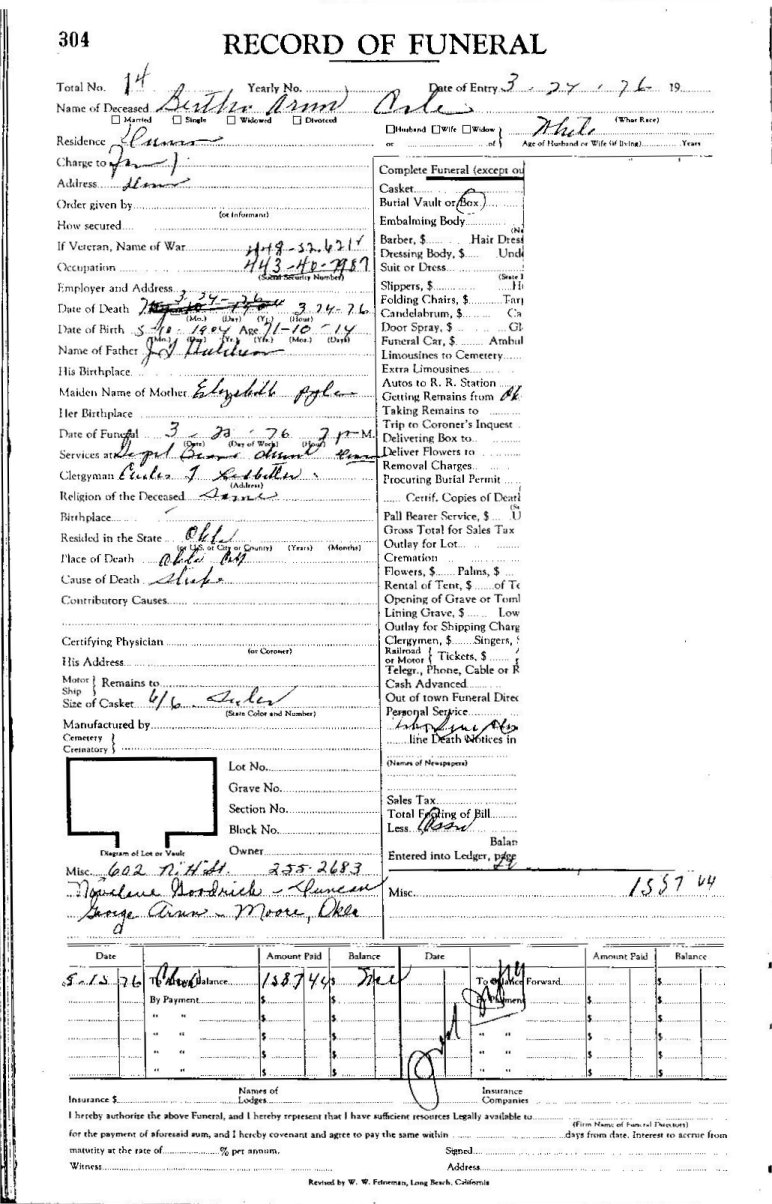 304
RECORD OF FUNERAL
Total No. 14 Yearly No. Date of Entry 3 - 24 - 76 19
Name of Deceased Bertha Arnn
Married Single Widowed Divorced
Husband Wife Widow White (What Race)
or of Age of Husband or Wife (if living) Years
Residence Duncan
Charge to
Address
Order given by
(or Informant)
How secured
If Veteran, Name of War 448-52-6214
Occupation 443-40-7987
(Social Security Number)
Employer and Address
Date of Death 3-24-76 3 24-76
(Mo.) (Day) (Yr.) (Hour)
Date of Birth 5-10-1904 Age 71-10-14
(Mo.) (Day) (Yr.) (Yrs.) (Mos.) (Days)
Name of Father
His Birthplace
Maiden Name of Mother Elizabeth
Her Birthplace
Date of Funeral 3 - 76 2 P M.
(Date) (Day of Week) (Hour)
Services at
Clergyman
(Address)
Religion of the Deceased Same
Birthplace
Resided in the State Okla
(or U.S. or City or County) (Years) (Months)
Place of Death Okla City
Cause of Death Stroke
Contributory Causes
Certifying Physician
(or Coroner)
His Address
Motor
Ship Remains to
Size of Casket 6/6 Silver
(State Color and Number)
Manufactured by
Cemetery
Crematory
Lot No.
Grave No.
Section No.
Block No.
Diagram of Lot or Vault Owner
Misc. 602 N. H St. 255-2683
Goodrich - Duncan
George Arnn - Moore, Okla
Complete Funeral (except ou
Casket
Burial Vault or Box
Embalming Body
Barber, $ Hair Dress
Dressing Body, $ Und
Suit or Dress
(State
Slippers, $
Folding Chairs, $ Tarp
Candelabrum, $ Ca
Door Spray, $ Gl
Funeral Car, $ Ambul
Limousines to Cemetery
Extra Limousines
Autos to R. R. Station
Getting Remains from
Taking Remains to
Trip to Coroner's Inquest
Delivering Box to
Deliver Flowers to
Removal Charges
Procuring Burial Permit
Certif. Copies of Deat
Pall Bearer Service, $ U
Gross Total for Sales Tax
Outlay for Lot
Cremation
Flowers, $ Palms, $
Rental of Tent, $ of Te
Opening of Grave or Tom
Lining Grave, $ Low
Outlay for Shipping Charg
Clergymen, $ Singers,
Railroad
or Motor Tickets, $
Telegr., Phone, Cable or R
Cash Advanced
Out of town Funeral Direc
Personal Service
line Death Notices in
(Names of Newspapers)
Sales Tax
Total Footing of Bill
Less
Balan
Entered into Ledger, page
Misc. 1587 44
Date Amount Paid Balance Date Amount Paid Balance
5-15 76 To Balance 1587 44 To Balance Forward $
By Payment $ $ By Payment $ $
" " $ $ " " $ $
" " $ $ " " $ $
" " $ $ " " $ $
Insurance $ Names of Lodges Insurance Companies
I hereby authorize the above Funeral, and I hereby represent that I have sufficient resources Legally available to
(Firm Name of Funeral Directors)
for the payment of aforesaid sum, and I hereby covenant and agree to pay the same within days from date. Interest to accrue from
maturity at the rate of % per annum. Signed
Witness Address
Revised by W. W. Frineman, Long Beach, California